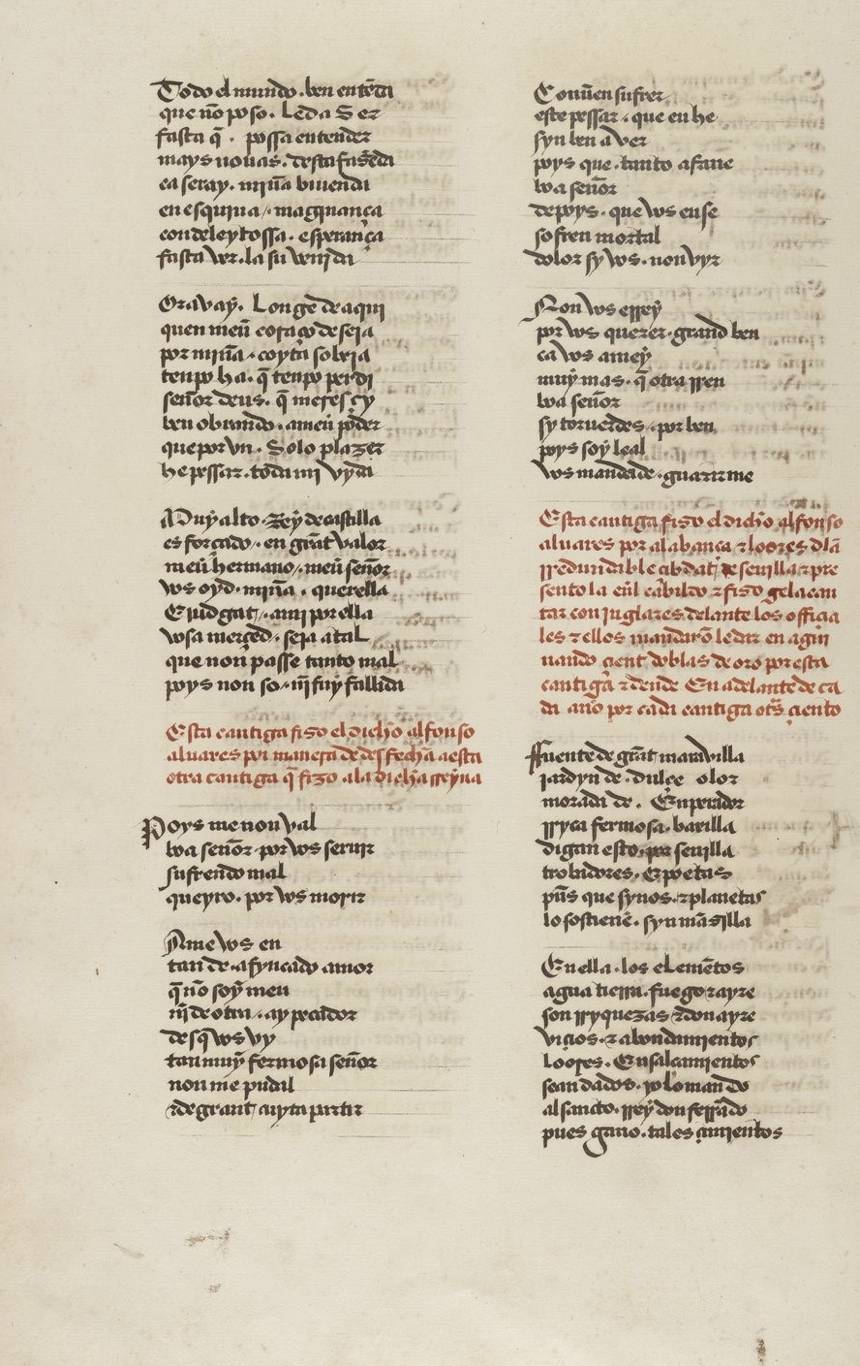 Todo el mundo · ben entēda
que nō poso · Leda Ser
fasta q̄ · possa entender
mays nouas · desta fasēda
ca seray · miña biuenda
en esquiua / · magynança
con deleytossa · esperança
fasta ver · la su venida
Ora vaȳ · Longe de aqui
quen meū coraço deseja
por miña · coyta sobeja
tenpo ha · q̄ tenpo perdi
señor deus · q̄ meresçy
ben obrando · a meū poder
que por vn · Solo plazer
he pessar · toda mi vyda
Muy alto · Rey de castilla
esforçado / · en grāt valor
meū hermano / · meū señor
vos oyd · miña · querella
E judgat / · a mi por ella
vosa merçed · seja atal
que non passe tanto mal
poys non so / · nī fuy fallida
Esta cantiga fiso el dicho alfonso
aluares por manera de desfecha a esta
otra cantiga q̄ fizo a la dicha rreyna
Poys me non val
boa señor · por vos seruir
sufrendo mal
queyro · por vos morir
Ame vos en
tan de · afyncado amor
q̄ nō soy meu
nī de otra · ay pecador
desq̄ vos vy
tan muy fermosa señor
non me pudal
de grant cuyta partir
Conuē sufrer
este pessar · que en he
syn ben aver
poys que · tanto afane
boa señor
depoys · que vos en se
sofren mortal
dolor sy vos · non vyr
Non vos errey
por vos querer · grand ben
ca vos amey
muy mas · q̄ otra rren
boa señor
sy toruerdes · por ben
poys soy leal
vos mandade · guarir me
Esta cantiga fiso el dicho alfonso
aluares por alabança z loores dla
rredundable çibdat de seuilla z pre
sento la en̄l cabildo z fiso gela can
tar con juglares delante los ofiçia
les z ellos mandarō le dar en agui
nando çient doblas de oro por esta
cantiga z dende En adelante de ca
da año por cada cantiga otrs çiento
Ffuente de grāt marauilla
jardyn de · dulçe olor
morada de · Enperador
rryca fermosa · barilla
digan esto · por seuilla
trobadores · E poetas
pūs que synos · z planetas
lo sostienē · syn māsilla
En ella · los elemētos
agua tierra · fuego z ayre
son rryquezas z donayre
viçios · z abondamientos
Loores · Ensalçamientos
sean dados · yo lo mando
al santo · rrey don ferrādo
pues gano · tales çimientos